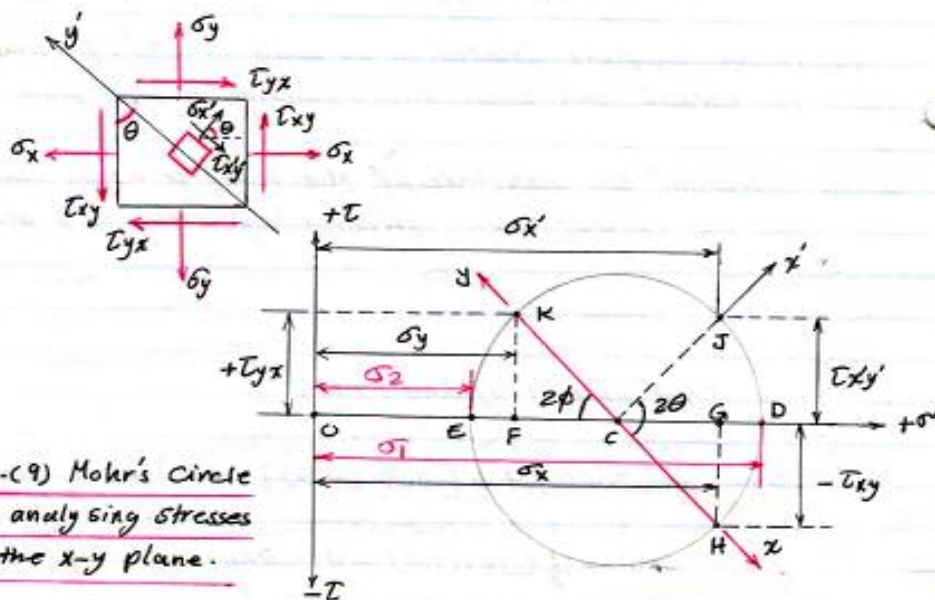 y'
σy
τyx
θ
σx'
θ
τxy
σx
σx
τx'y'
τxy
τyx
σy
+τ
σx'
x'
y
K
J
+τyx
σy
τx'y'
σ2
2φ
2θ
O
E
F
C
G
D
+σ
σ1
σx
-τxy
H
x
-τ
-(9) Mohr's Circle
analysing stresses
the x-y plane.